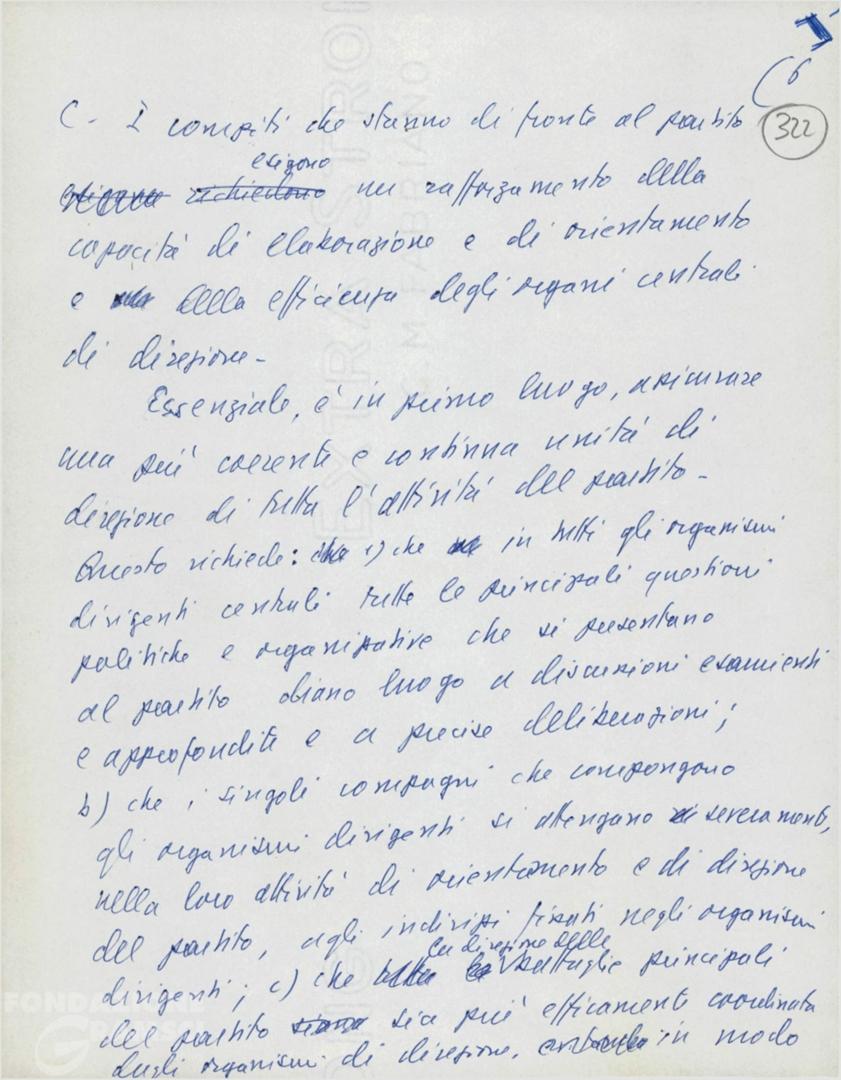 6
322
C - I compiti che stanno di fronte al partito
esigono
richiedono un rafforzamento della
capacità di elaborazione e di orientamento
e della efficienza degli organi centrali
di direzione -
Essenziale, è in primo luogo, assicurare
una più coerente e continua unità di
direzione di tutta l'attività del partito -
Questo richiede: che 1) che in tutti gli organismi
dirigenti centrali tutte le principali questioni
politiche e organizzative che si presentano
al partito diano luogo a discussioni esaurienti
e approfondite e a precise deliberazioni;
b) che i singoli compagni che compongono
gli organismi dirigenti si attengano severamente,
nella loro attività di orientamento e di direzione
del partito, agli indirizzi fissati negli organismi
la direzione delle
dirigenti; c) che battaglie principali
del partito siano sia più efficamente coordinata
dagli organismi di direzione, in modo
EXTRA STRONG
C. M. FABRIANO
FONDAZIONE
GRAMSCI